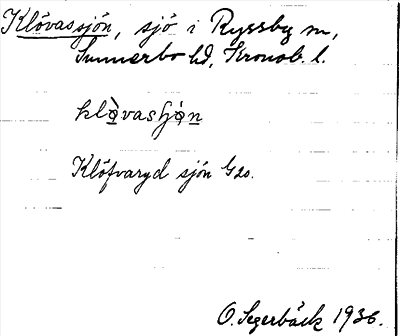 Klövassjön, sjö i Ryssby sn,
Sunnerbo hd, Kronob. l.
klòvasjǫ̀n
Klöfvaryd sjön G20.
O. Segerbäck 1936.